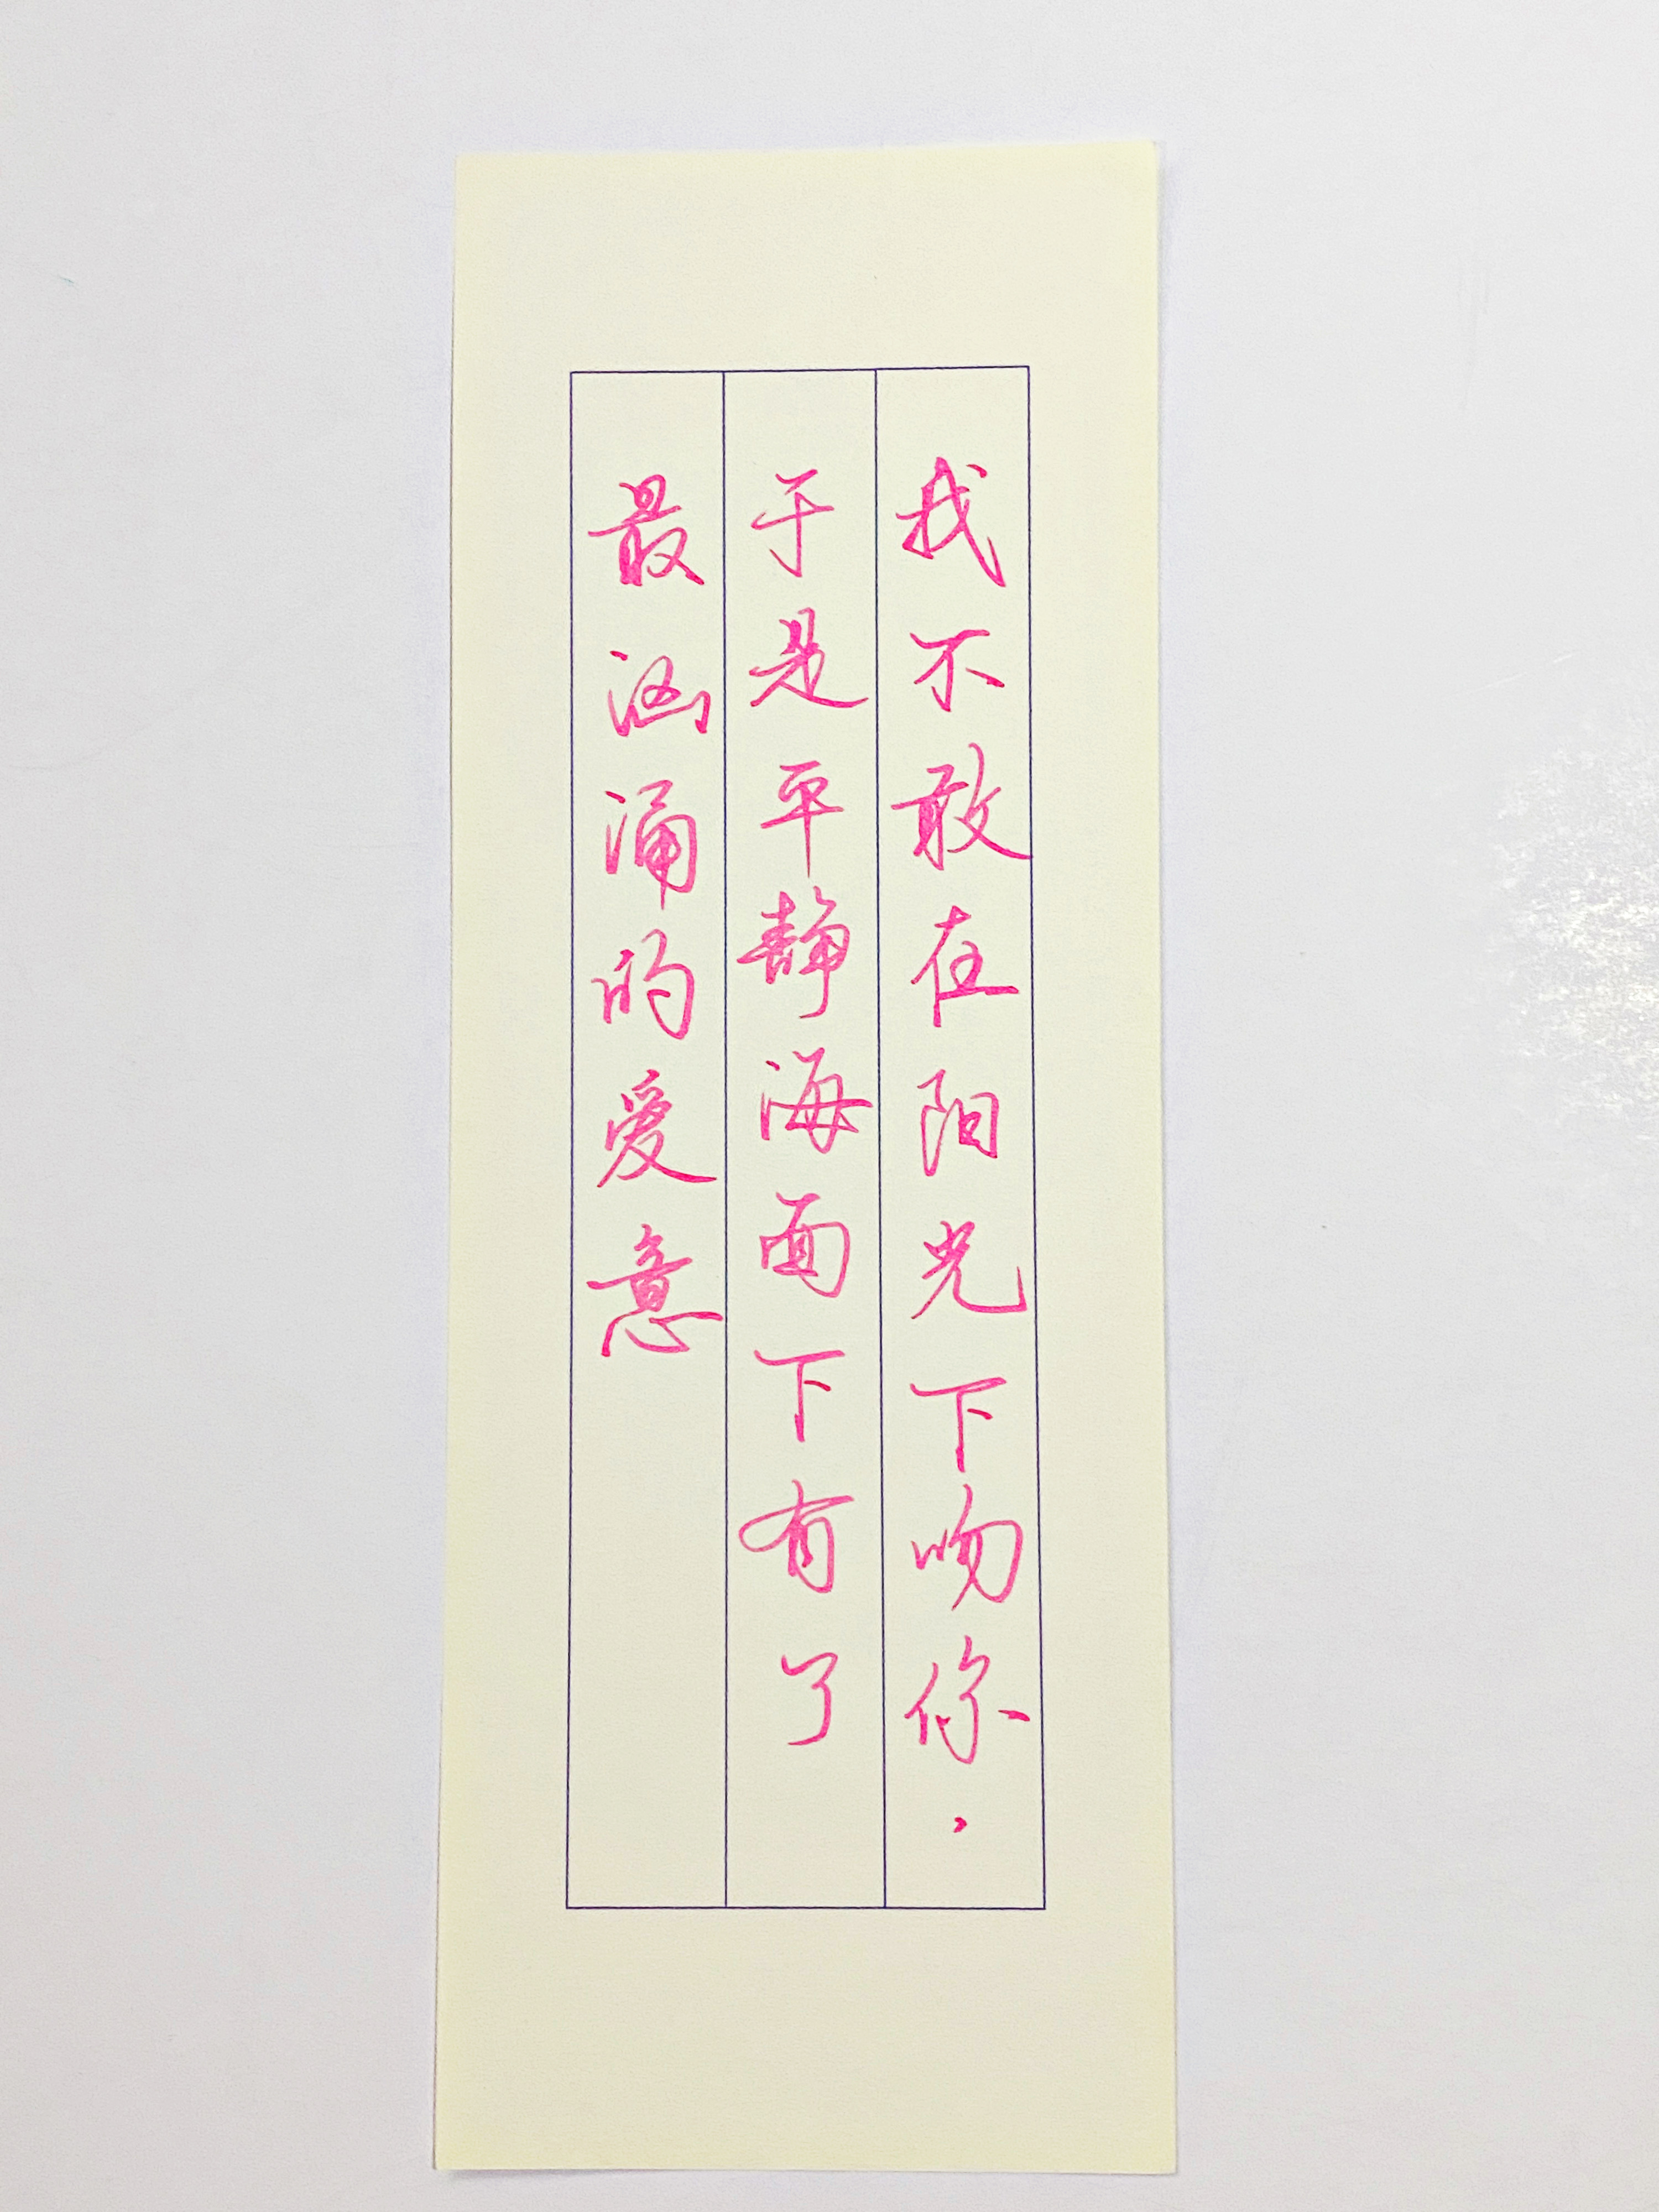 我不敢在阳光下吻你，
于是平静海面下有了
最汹涌的爱意